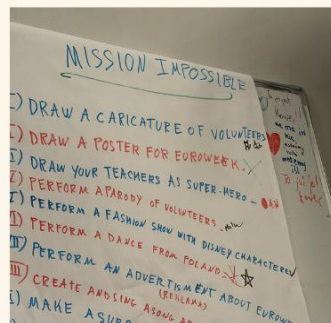 MISSION IMPOSSIBLE
I) DRAW A CARICATURE OF VOLUNTEERS
I) DRAW A POSTER FOR EUROWEEK.
I) DRAW YOUR TEACHERS AS SUPER-HERO
I) PERFORM A PARODY OF VOLUNTEERS
I) PERFORM A FASHION SHOW WITH DISNEY CHARACTERS
I) PERFORM A DANCE FROM POLAND
III) PERFORM AN ADVERTISMENT ABOUT EUROWE
(REKLAMA)
III) CREATE AND SING A SONG
I) MAKE A